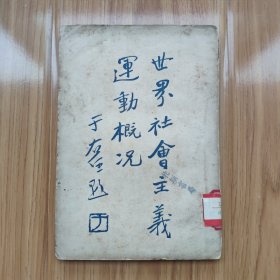 世界社會主義
運動概况
于右任題